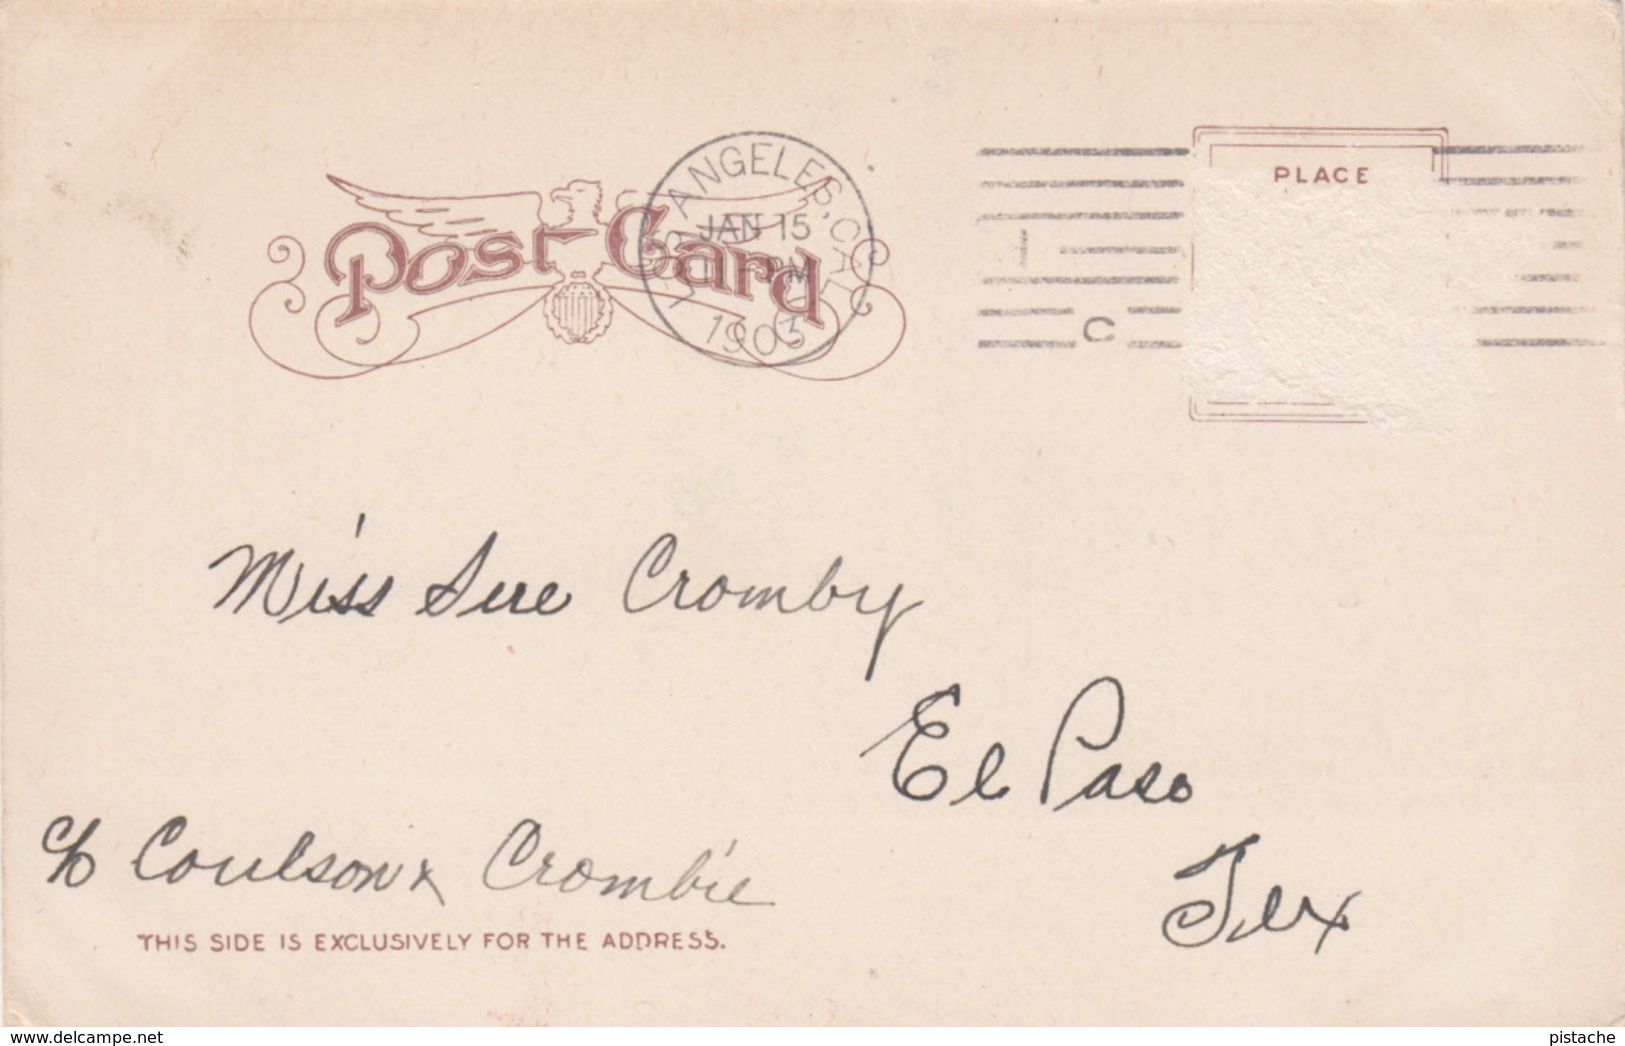 Post Card
LOS ANGELES, CAL.
JAN 15
PM
1903
PLACE
C
Miss Sue Cromby
El Paso
Tex
c/o Coulson & Crombie
THIS SIDE IS EXCLUSIVELY FOR THE ADDRESS.
www.delcampe.net
pistache